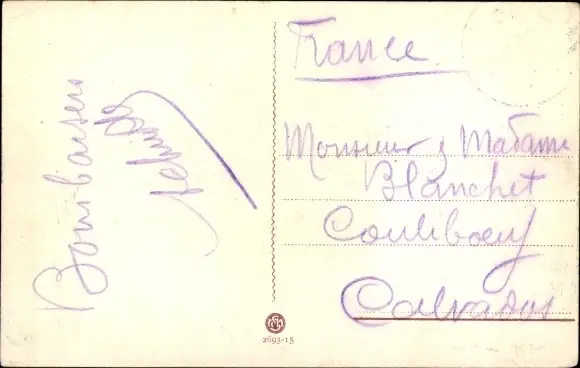 Bons baisers
France
Monsieur & Madame
Blanchet
Couliboeuf
Calvados
2693-15